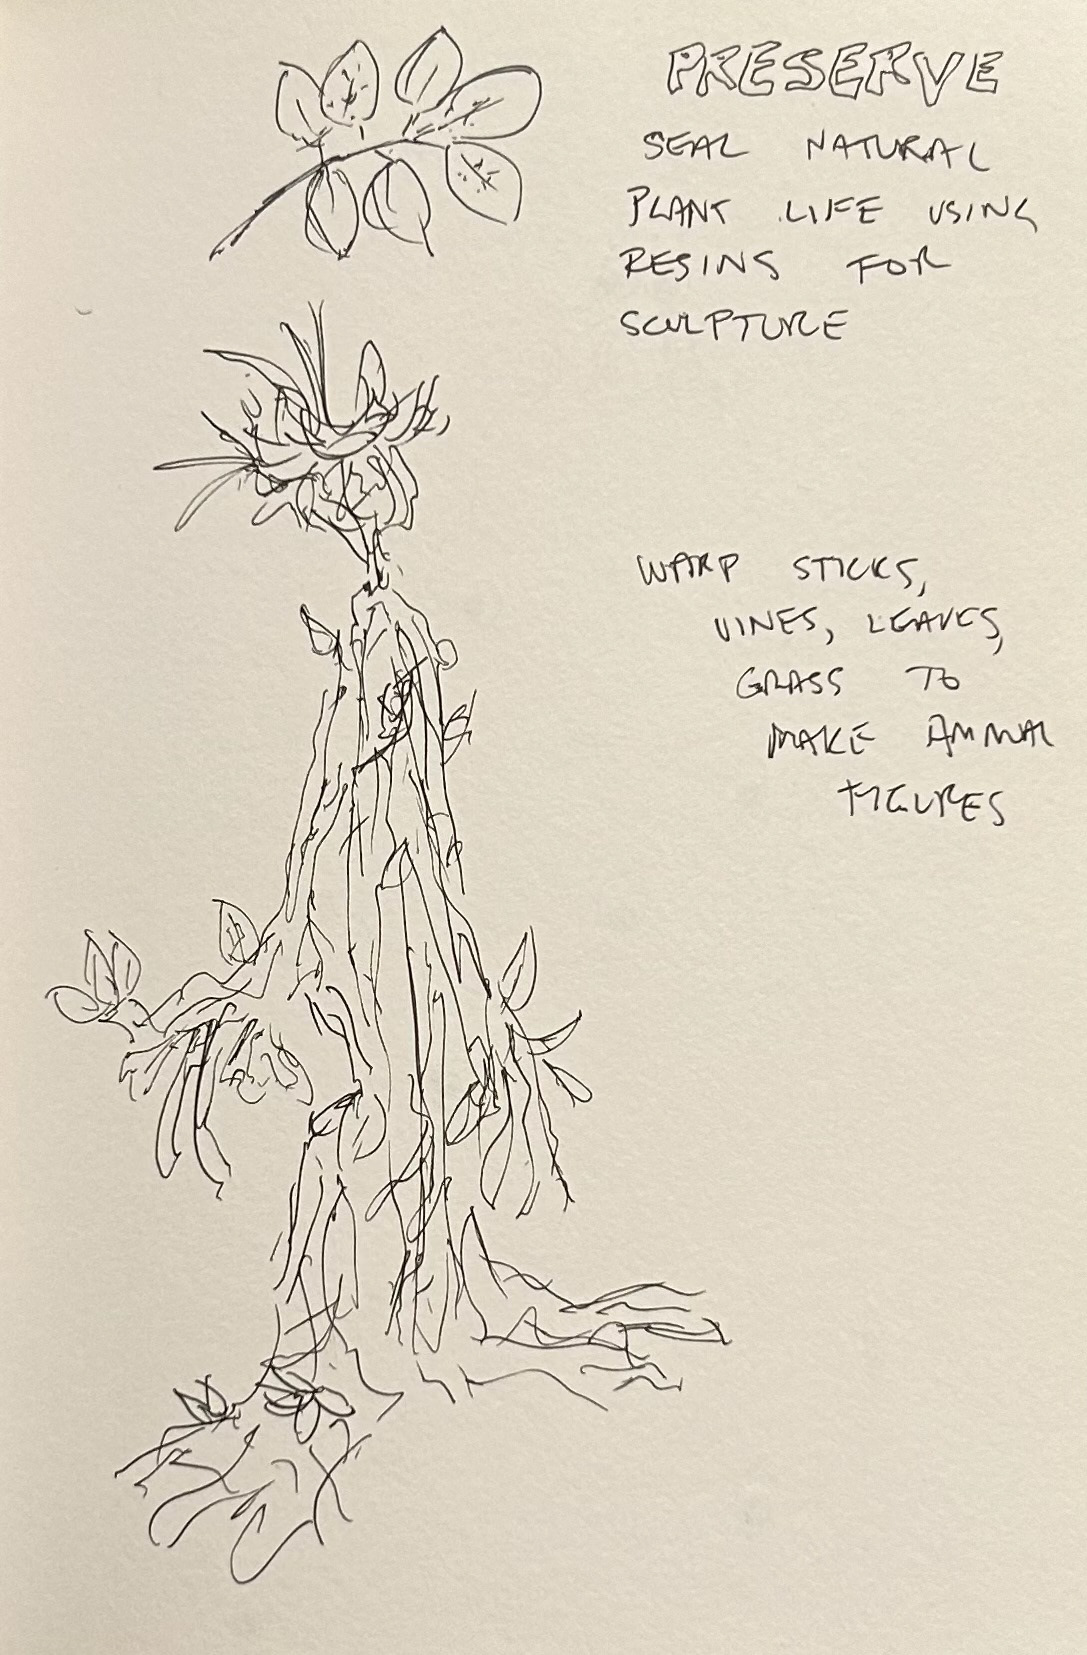 PRESERVE
SEAL NATURAL
PLANT LIFE USING
RESINS FOR
SCULPTURE
WARP STICKS,
VINES, LEAVES,
GRASS TO
MAKE ANIMAL
FIGURES